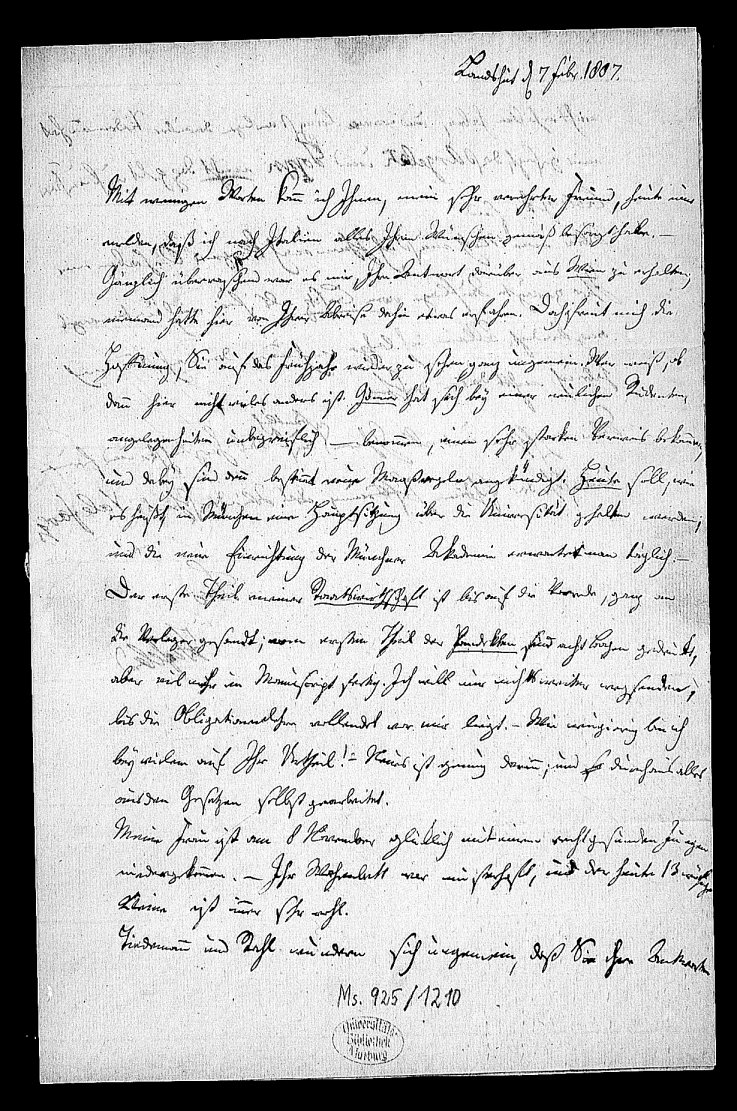 Landshut d 7 Febr. 1807.
Mit wenigen Worten kann ich Ihnen, mein sehr verehrter Freund, heute nur
melden, daß ich nach Italien alles Ihren Wünschen gemäß besorgt habe. –
Gänzlich überraschend war es mir, Ihre Antwort darüber aus Wien zu erhalten;
niemand hatte hier von Ihrer Abreise dahin etwas erfahren. Doch freut mich die
Hoffnung, Sie auf das Frühjahr wieder zu sehen ganz ungemein. Wer weiß, ob
dann hier nicht vieles anders ist. Gönner hat sich bey einer neulichen Studenten
angelegenheit unbegreiflich – benommen, einen sehr starken Verweis bekommen,
und dabey sind denn bestimmt neue Maaßregeln angekündigt. Heute soll, wie
es heißt, in München eine Hauptsitzung über die Universität gehalten werden,
und die neue Einrichtung der Münchner Akademie erwartet man täglich. –
Der erste Theil meiner Staatswirthschaft ist bis auf die Vorrede, ganz an
die Verleger gesandt; vom ersten Theil der Pandekten sind acht Bogen gedruckt,
aber viel mehr im Manuscript fertig. Ich will nur nichts weiter wegsenden,
bis die Obligationenlehre vollendet vor mir liegt. – Wie neugierig bin ich
bey vielem auf Ihr Urtheil! – Neues ist genug darinn; und es durchaus alles
aus den Gesetzen selbst gearbeitet.
Meine Frau ist am 8 November glücklich mit einem recht gesunden Jungen
niedergekommen. – Ihr Wochenbett war und der heute 13
Kleine ist immer sehr wohl.
Tiedemann und Stahl wundern sich ungemein, daß Sie ihre Antworten
Ms. 925/1210
Universitäts-
Bibliothek
Marburg